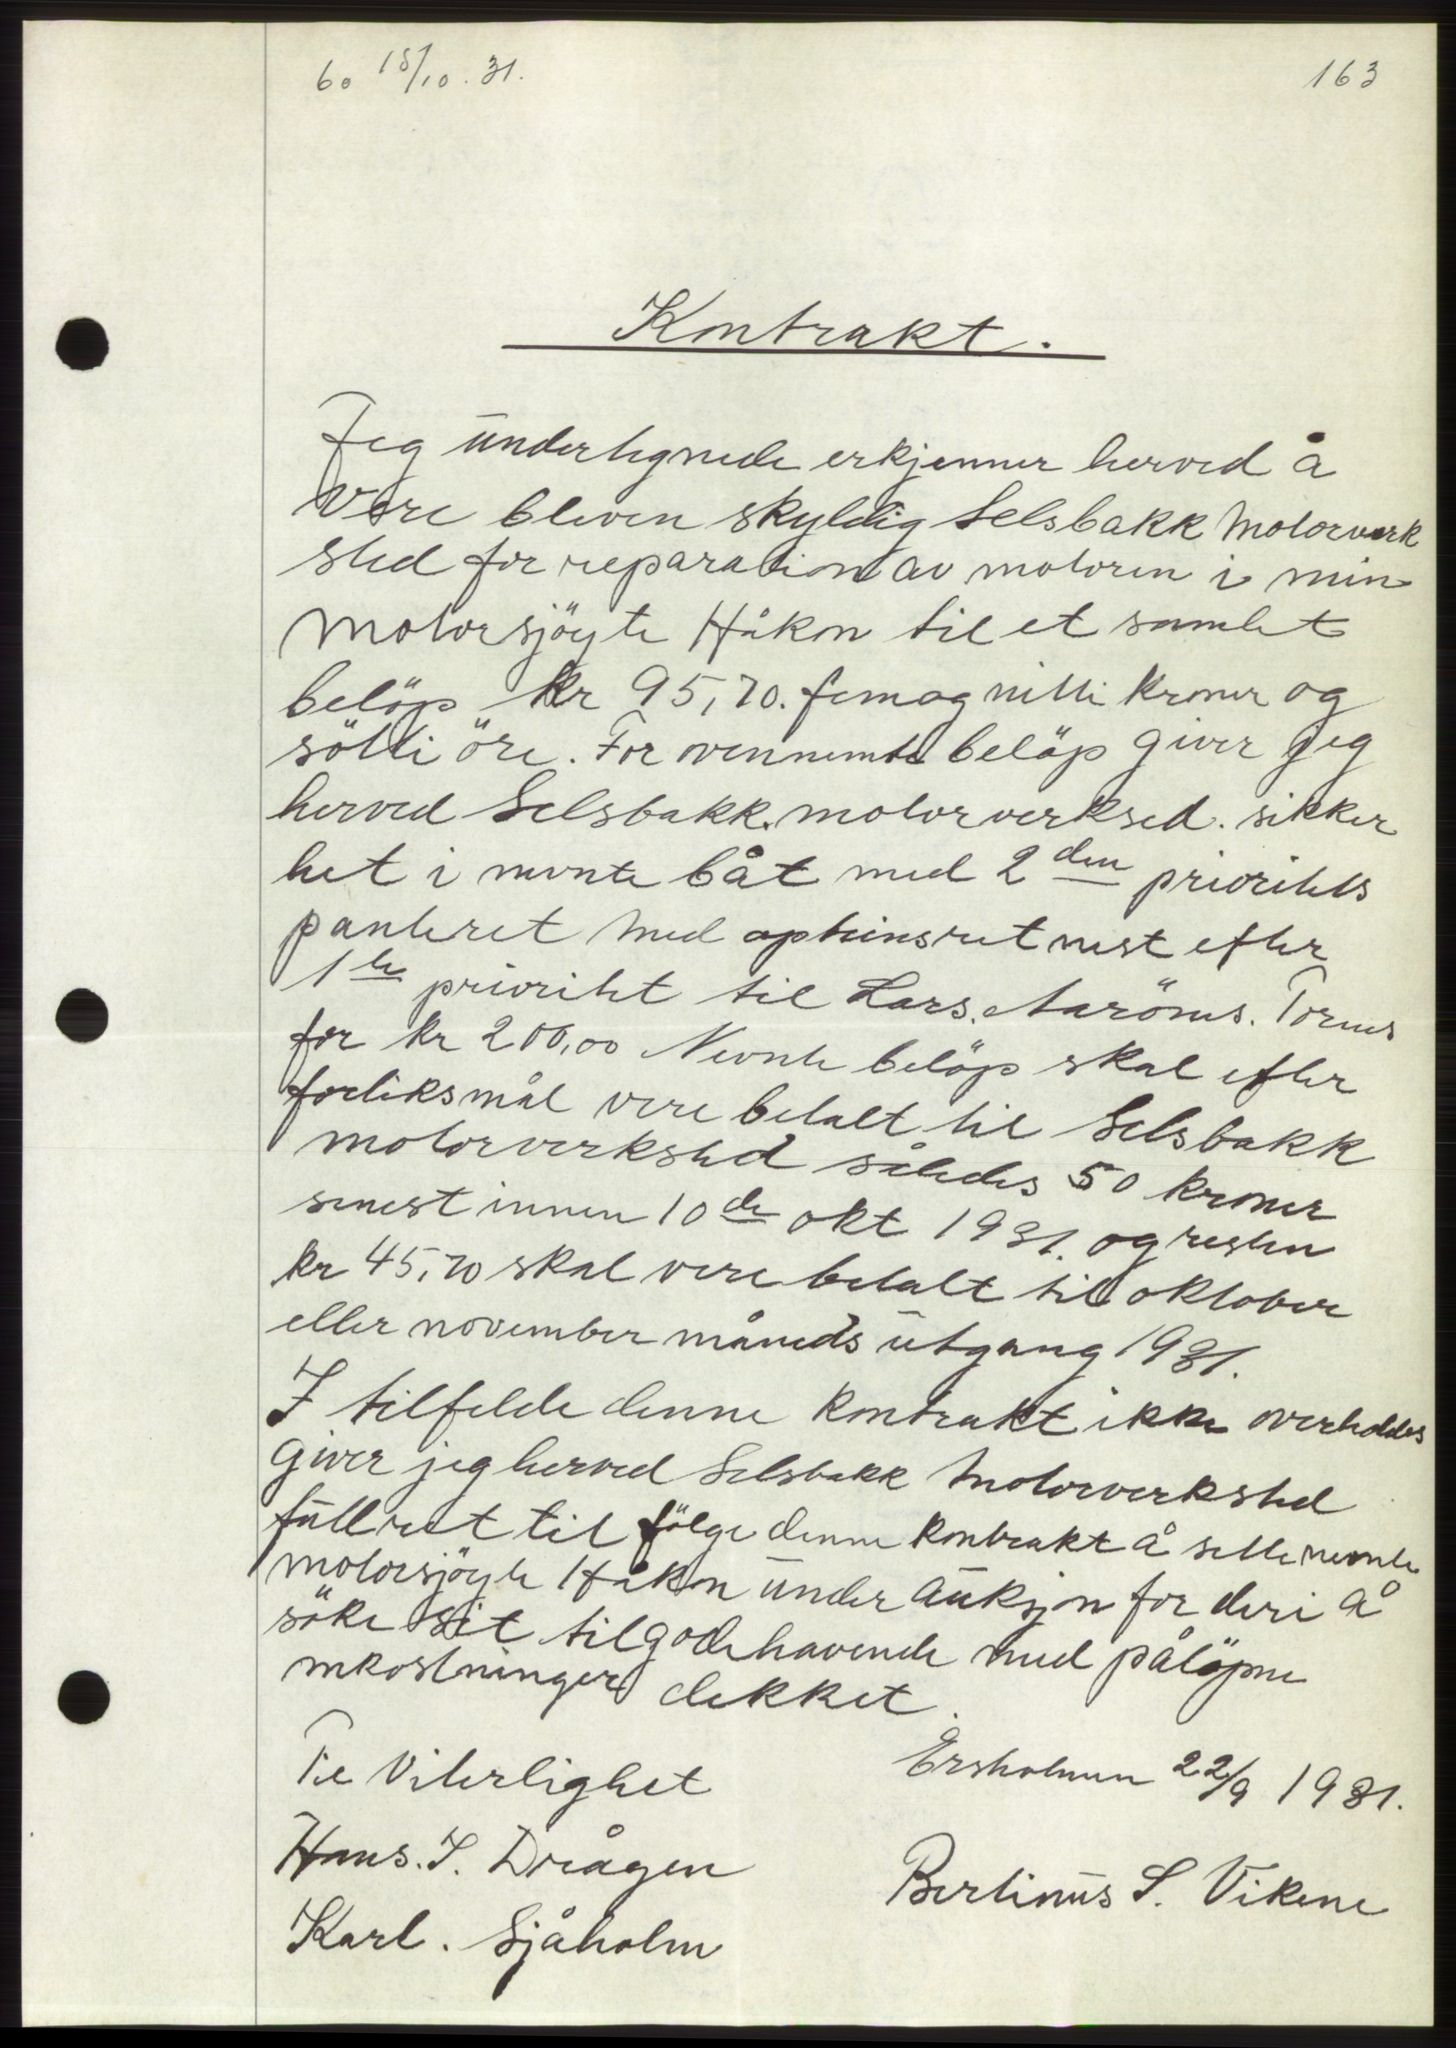 60 15/10. 31.
163
Kontrakt.
Jeg undertegnede erkjenner herved å
vere bleven skyldig Selsbakk Motorverk
sted for reparation av motoren i min
Motorsjöyte Håkon til et samlet
belöp kr 95,70. femog nitti kroner og
sötti öre. For ovennemte belöp giver jeg
herved Selsbakk. motorverksed. sikker
het i nevnte båt med 2den prioritets
panteret med optionsret nest efter
1te prioritet til Lars. Aarönes. Tornes
for kr 200,00 Nevnte belöp skal efter
forliksmål vere betalt til Selsbakk
motorverksted således 50 kroner
senest innen 10de okt 1931. og resten
kr 45,70 skal vere betalt til oktober
eller november måneds utgang 1931.
I tilfelde denne kontrakt ikke overholdes
giver jeg herved Selsbakk Motorverksted
full ret til fölge denne kontrakt å sette nevnte
motorsjöyte Håkon under auksjon for deri å
söke sit tilgodehavende med pålöpne
mkostninger dekket.
Til Viterlighet
Ersholmen 22/9 1931.
Hans. I. Drågen
Bertinus S. Vikene
Karl. Sjåholm